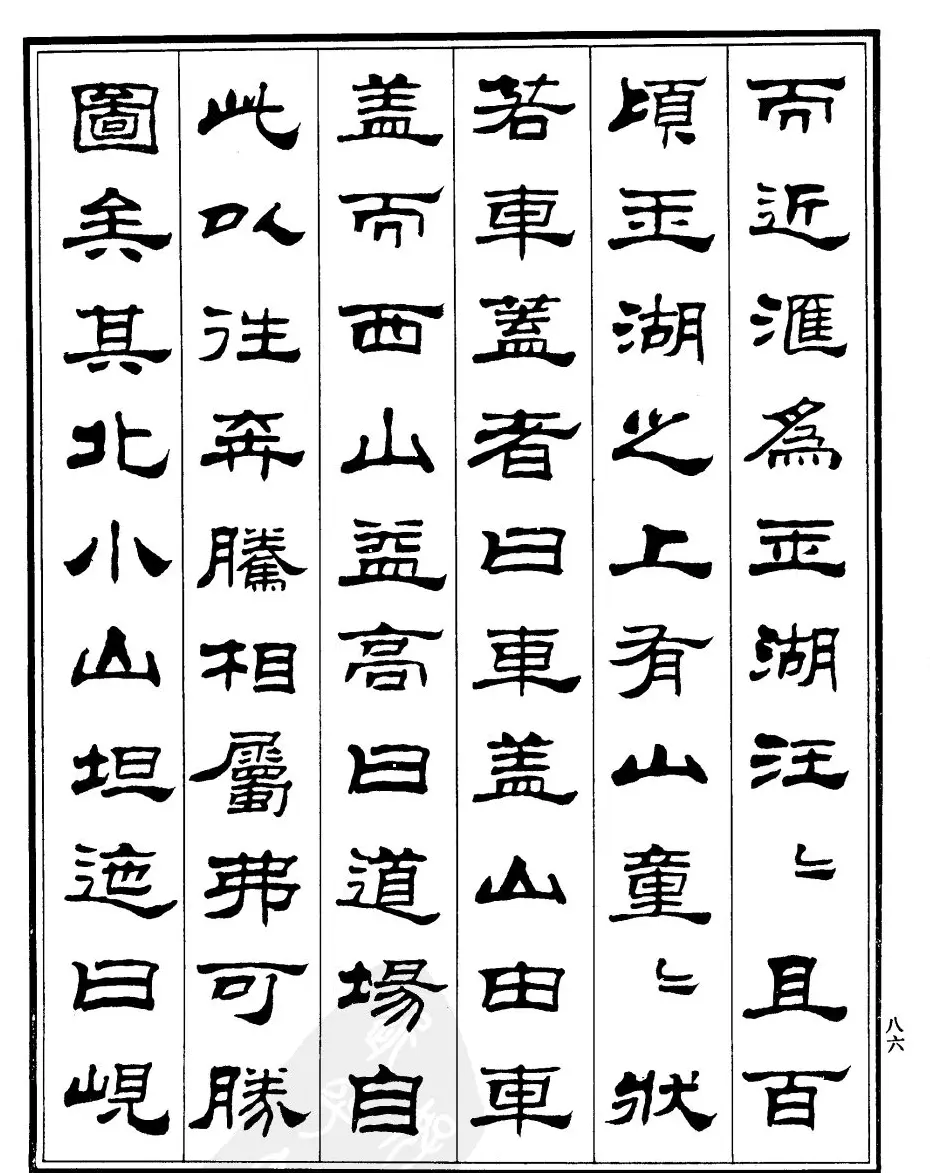 而近滙爲玉湖汪〻且百
頃玉湖之上有山童〻狀
若車蓋者曰車盖山由車
盖而西山益高曰道場自
此以往奔騰相屬弗可勝
圖矣其北小山坦迤曰峴
八六